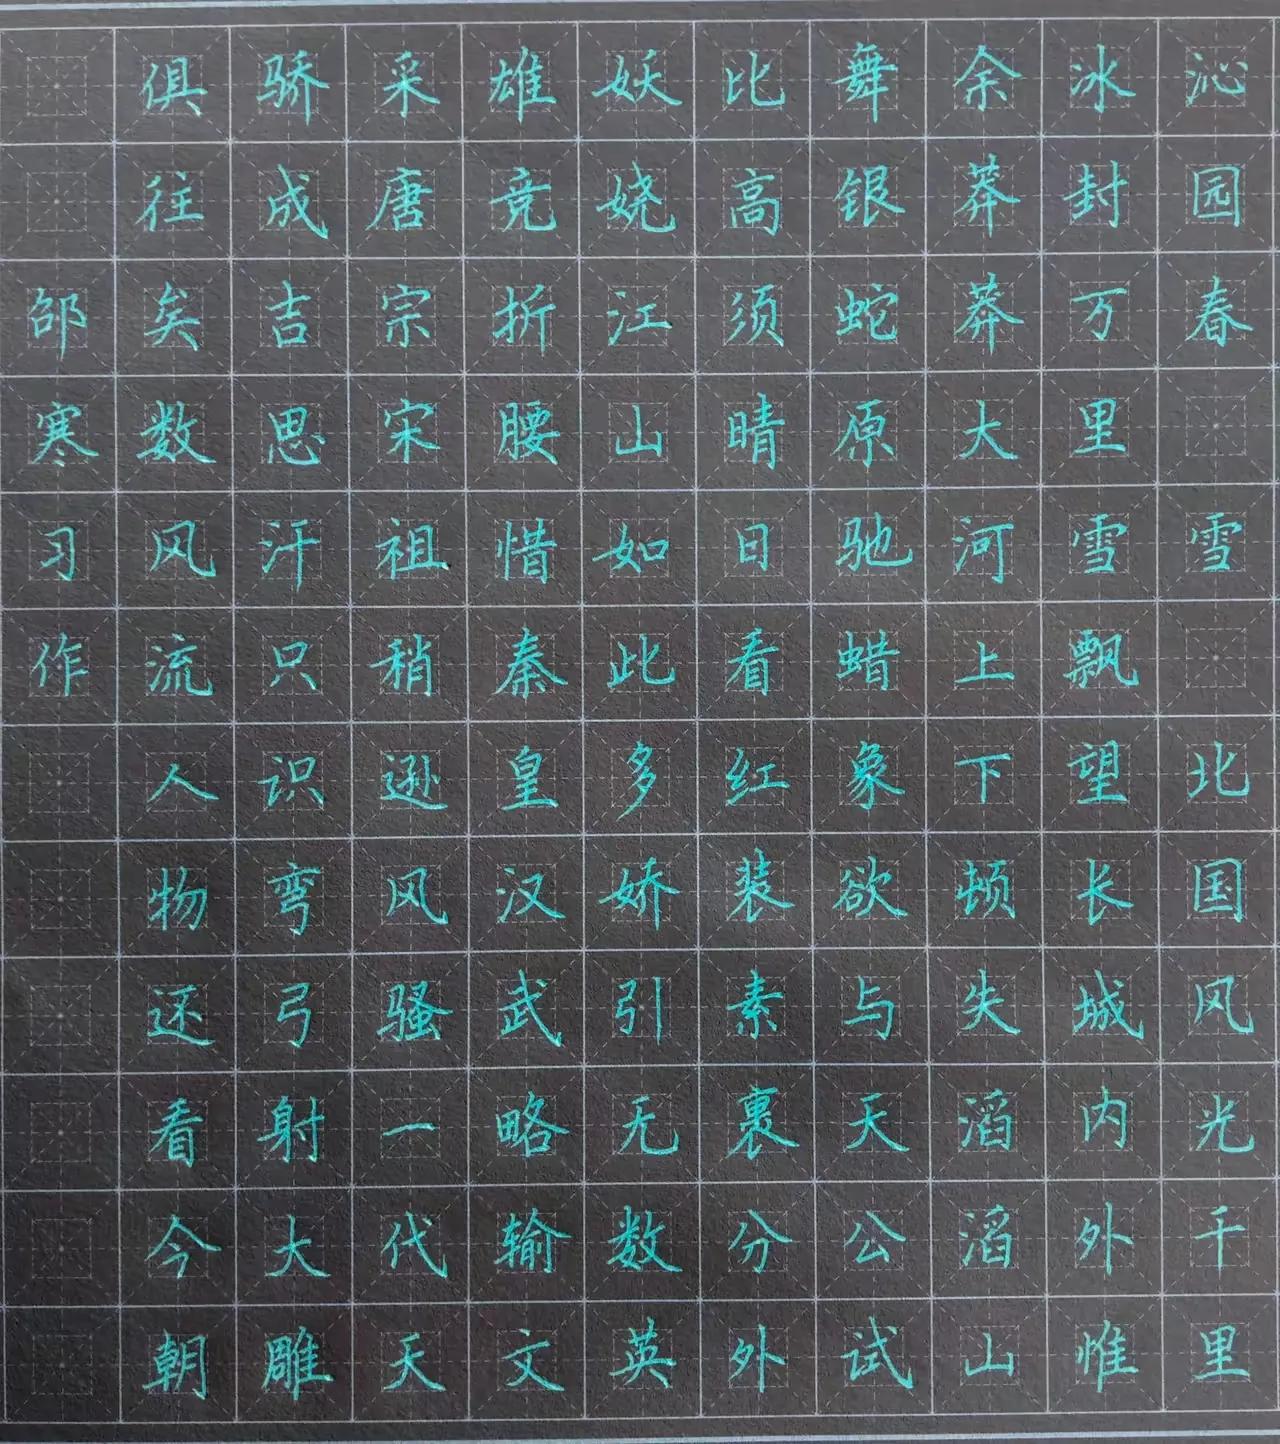 沁园春 雪 北国风光千里
冰封万里雪飘望长城内外惟
余莽莽大河上下顿失滔滔山
舞银蛇原驰蜡象欲与天公试
比高须晴日看红装素裹分外
妖娆江山如此多娇引无数英
雄竞折腰惜秦皇汉武略输文
采唐宗宋祖稍逊风骚一代天
骄成吉思汗只识弯弓射大雕
俱往矣数风流人物还看今朝
邵寒习作